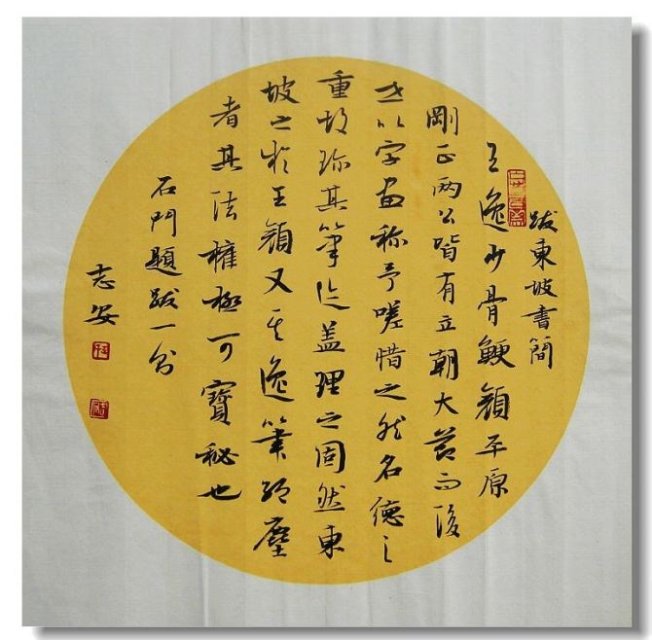 跋東坡書簡
王逸少骨鯁顏平原
剛正兩公皆有立朝大節而後
世以字畫称予嗟惜之然名德之
重故珎其筆迹蓋理之固然東
坡之於王顏又其逸筆絕塵
者其法權極可寶秘也
石門題跋一
志安